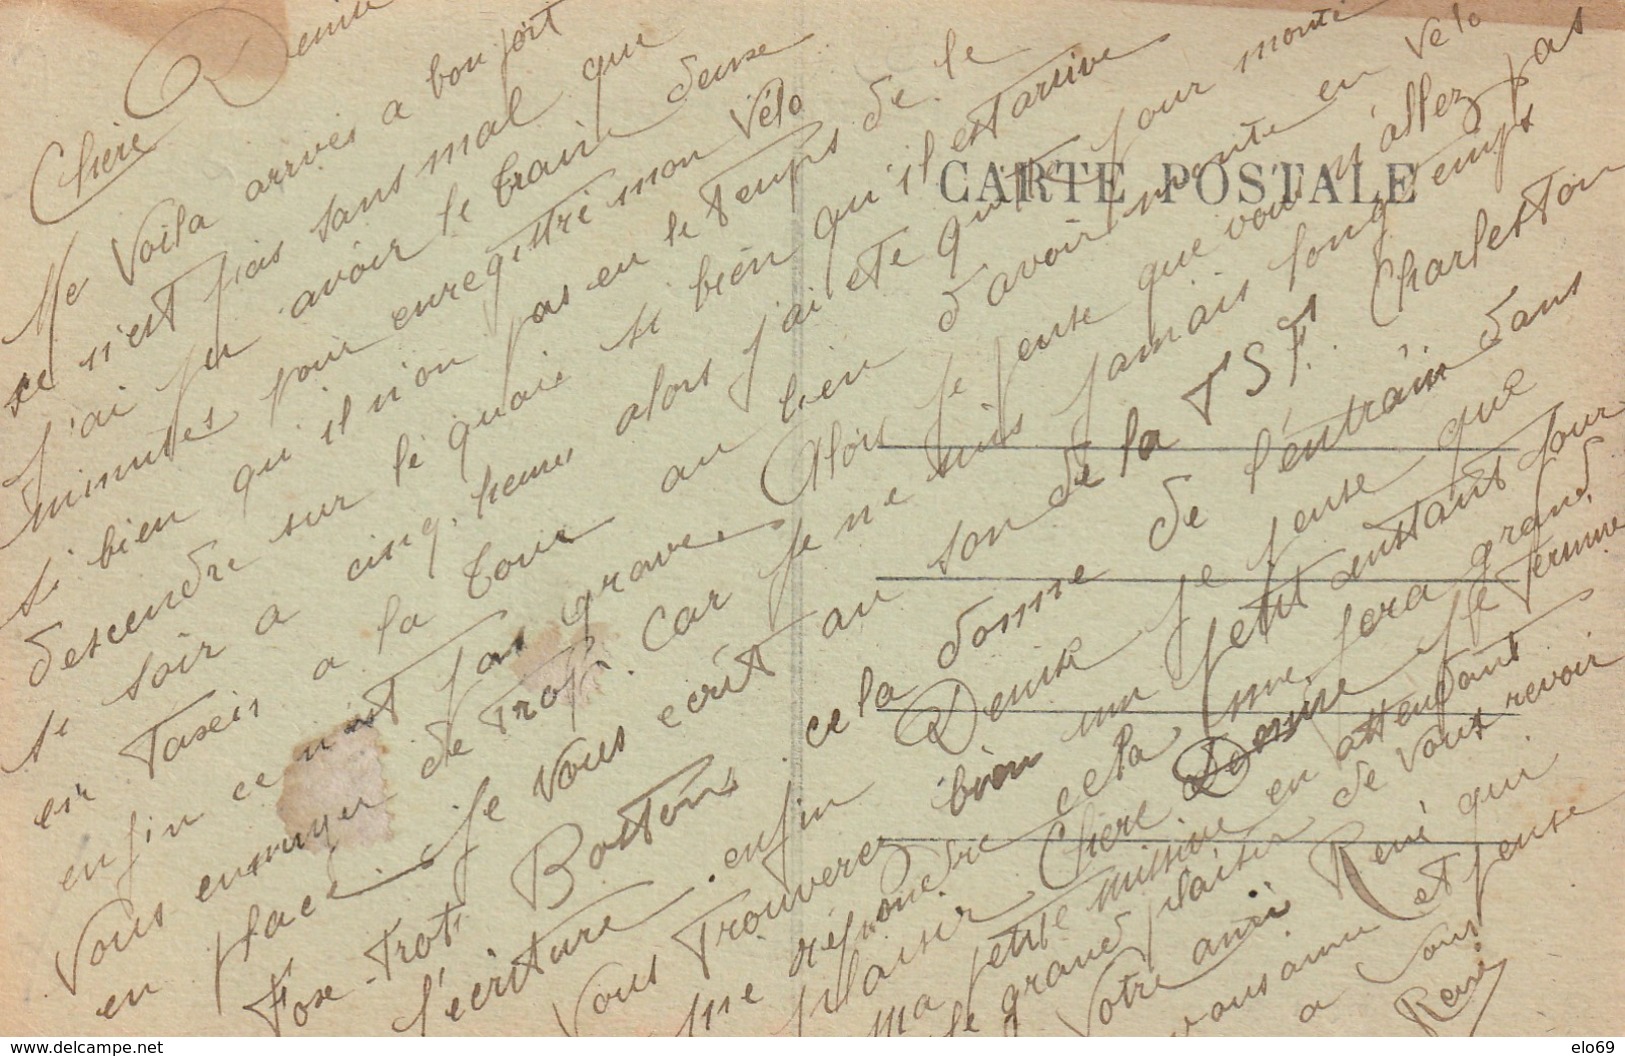 Chère Denise
Me Voila arrivés a bon port
ce n'est pas sans mal que
J'ai pu avoir le train deuse
minutes pour enregistré mon vélo
si bien qu'il n'on pas eu le temps de le
descendre sur le quaie si bien qu'il est arrive
se soir a cinq. heures alors j'ai ete quitte pour monté
en Taxeis a la tour au lieu d'avoir monte en vélo
enfin ce n'est pas grave. Alors je pense que vous n'allez pas
Vous ennuyer de Trop. Car je ne suis jamais longtemps
en place. Je vous ecrit au son de la T S F. Charleston
Foxe-Trot Boston cela donne de l'entrain dans
l'écriture. enfin Denise je pense que
Vous Trouverez bien un petit instant pour
me répondre cela me fera grand
plaisir Chere Denise je termine
ma petite missive en attendant
le grand plaisir de vous revoir
Votre ami René qui
vous aime et pense
a vous
René
CARTE POSTALE
elo69
www.delcampe.net